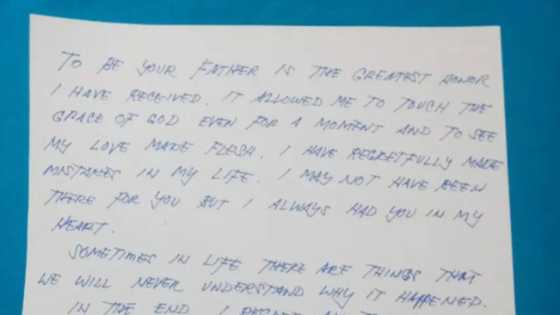 TO BE YOUR FATHER IS THE GREATEST HONOR
I HAVE RECEIVED. IT ALLOWED ME TO TOUCH THE
GRACE OF GOD EVEN FOR A MOMENT AND TO SEE
MY LOVE MADE FLESH. I HAVE REGRETFULLY MADE
MISTAKES IN MY LIFE. I MAY NOT HAVE BEEN
THERE FOR YOU BUT I ALWAYS HAD YOU IN MY
HEART.
SOMETIMES IN LIFE THERE ARE THINGS THAT
WE WILL NEVER UNDERSTAND WHY IT HAPPENED.
IN THE END I